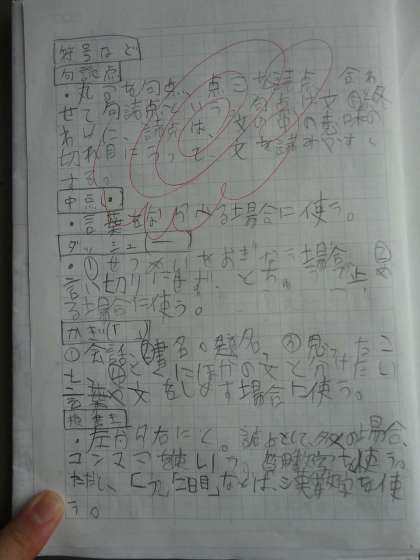 符号など
句読点
・丸。を句点、点、を読点 合わ
せて句読点という。句点は文の終
わりに、読点は、文の中の意味の
切れ目にうって、文を読みやすく
する。
中点・
・言葉をならべる場合に使う。
ダッシュ―
・①せつめいをおぎなう場合 ②
言い切りにせず、とちゅうで止め
る場合に使う。
かぎ「 」
①会話 ②書名。題名 ③思ったこ
と ④とくにほかの文と分けたい
言葉や文をしめす場合に使う。
横書き
・左から右にく。読点として、の場合、
コンマを使い、算用数字を使う。
ただし、「九」「二日目」などは、漢数字を使
う。